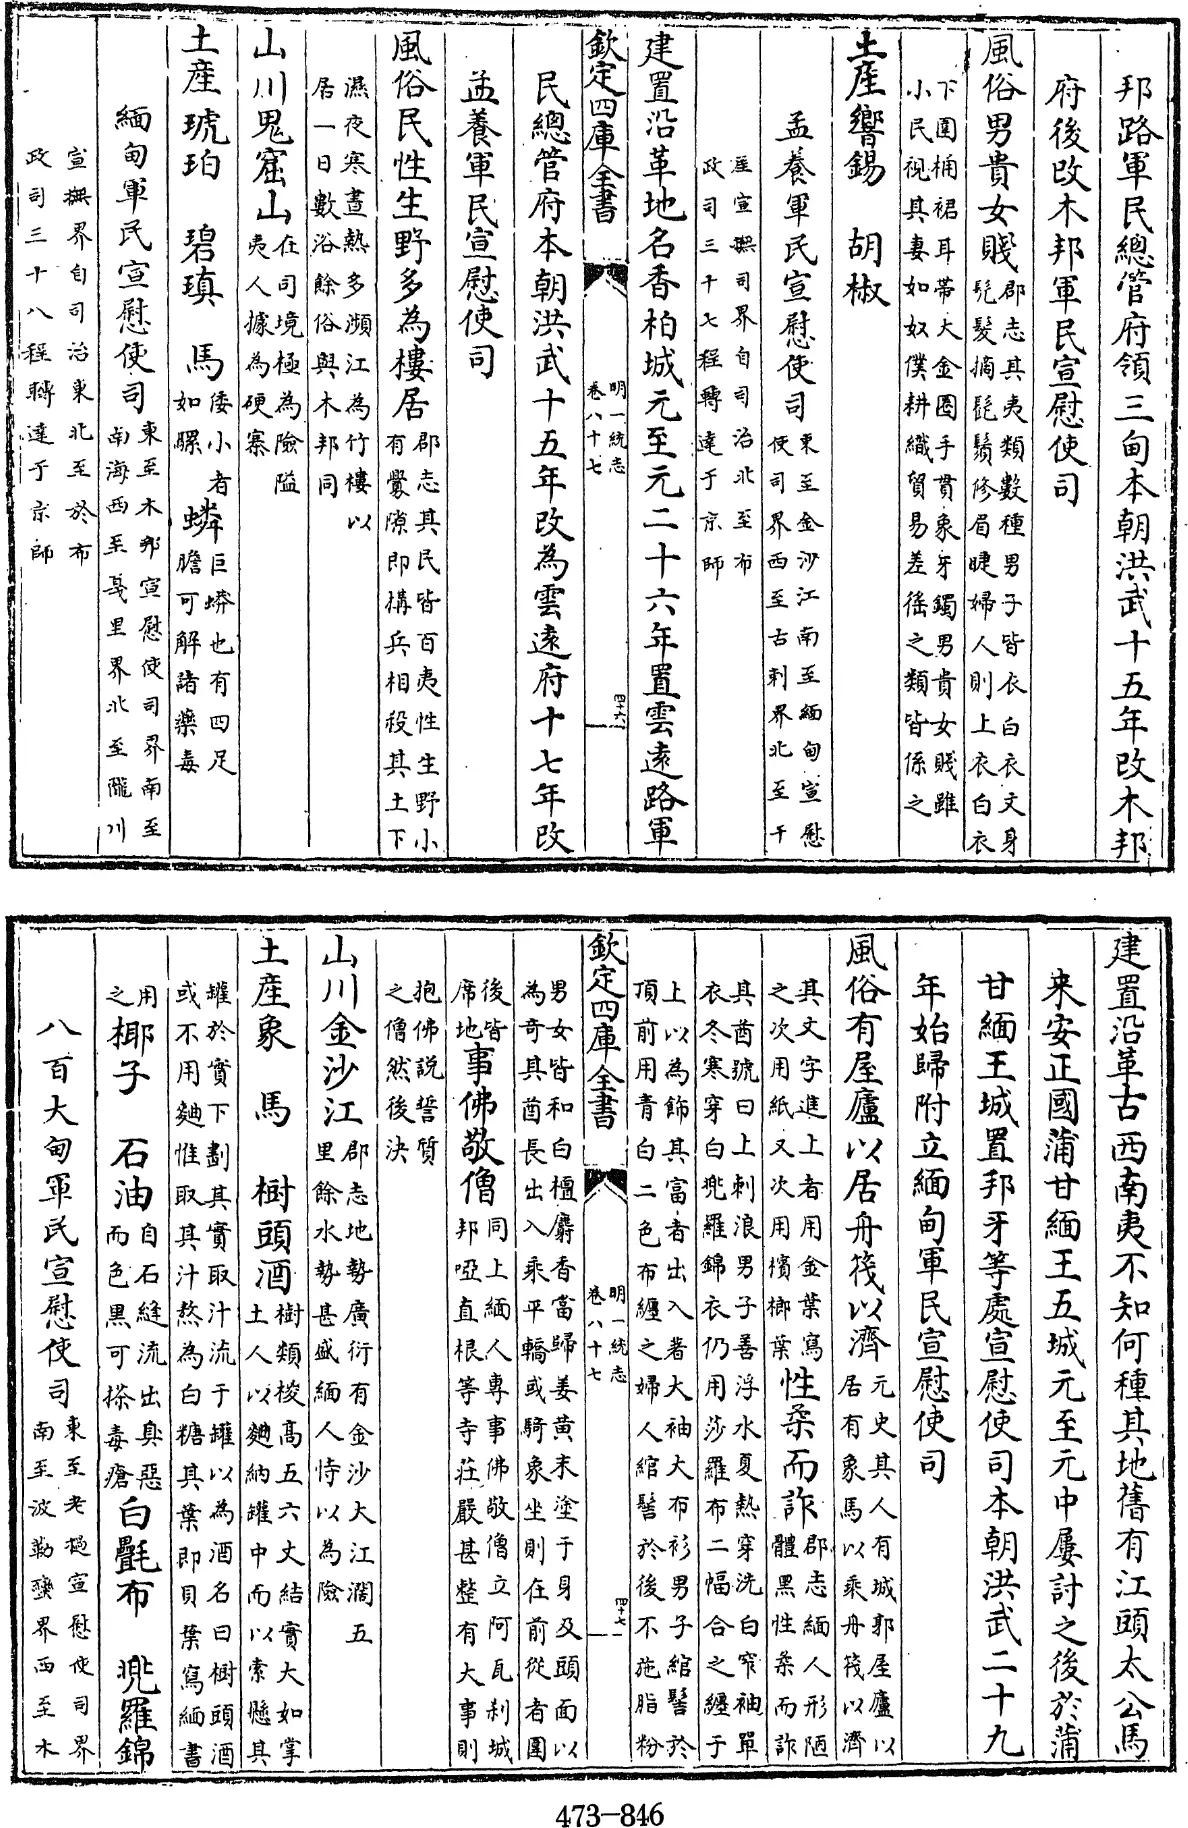 邦路軍民總管府領三甸本朝洪武十五年改木邦
府後改木邦軍民宣慰使司
風俗男貴女賤郡志其夷類數種男子皆衣白衣文身
髠髮摘髭鬚修眉睫婦人則上衣白衣
下圍桶裙耳帶大金圈手貫象牙鐲男貴女賤雖
小民視其妻如奴僕耕織貿易差徭之類皆係之
土産響錫 胡椒
孟養軍民宣慰使司東至金沙江南至緬甸宣慰
使司界西至古剌界北至干
崖宣撫司界自司治北至布
政司三十七程轉達于京師
建置沿革地名香柏城元至元二十六年置雲遠路軍
欽定四庫全書
明一統志
卷八十七
四十六
民總管府本朝洪武十五年改為雲遠府十七年改
孟養軍民宣慰使司
風俗民性生野多為樓居郡志其民皆百夷性生野小
有釁隙即構兵相殺其土下
濕夜寒晝熱多瀕江為竹樓以
居一日數浴餘俗與木邦同
山川鬼窟山在司境極為險隘
夷人據為硬寨
土産琥珀 碧瑱 馬矮小者
如騾 蟒巨蟒也有四足
膽可解諸藥毒
緬甸軍民宣慰使司東至木邦宣慰使司界南至
南海西至戛里界北至隴川
宣撫界自司治東北至於布
政司三十八程轉達于京師
建置沿革古西南夷不知何種其地舊有江頭太公馬
来安正國蒲甘緬王五城元至元中屢討之後於蒲
甘緬王城置邦牙等處宣慰使司本朝洪武二十九
年始歸附立緬甸軍民宣慰使司
風俗有屋廬以居舟筏以濟元史其人有城郭屋廬以
居有象馬以乘舟筏以濟
其文字進上者用金葉寫
之次用紙又次用檳榔葉性柔而詐郡志緬人形陋
體黑性柔而詐
其酋號曰上剌浪男子善浮水夏熱穿洗白窄袖單
衣冬寒穿白兜羅錦衣仍用莎羅布二幅合之纏于
上以為飾其富者出入著大袖大布衫男子綰髻於
頂前用青白二色布纏之婦人綰髻於後不施脂粉
欽定四庫全書
明一統志
卷八十七
四十七
男女皆和白檀麝香當歸姜黄末塗于身及頭面以
為奇其酋長出入乘平轎或騎象坐則在前從者圍
後皆
席地事佛敬僧同上緬人專事佛敬僧立阿瓦剎城
邦啞直根等寺莊嚴甚整有大事則
抱佛説誓質
之僧然後决
山川金沙江郡志地勢廣衍有金沙大江濶五
里餘水勢甚盛緬人恃以為險
土産象 馬 樹頭酒樹類椶髙五六丈結實大如掌
土人以麯納罐中而以索懸其
罐於實下劃其實取汁流于罐以為酒名曰樹頭酒
或不用麯惟取其汁熬為白糖其葉即貝葉寫緬書
用
之椰子 石油自石縫流出臭惡
而色黑可搽毒瘡白氎布 兜羅錦
八百大甸軍民宣慰使司東至老撾宣慰使司界
南至波勒蠻界西至木
473-846